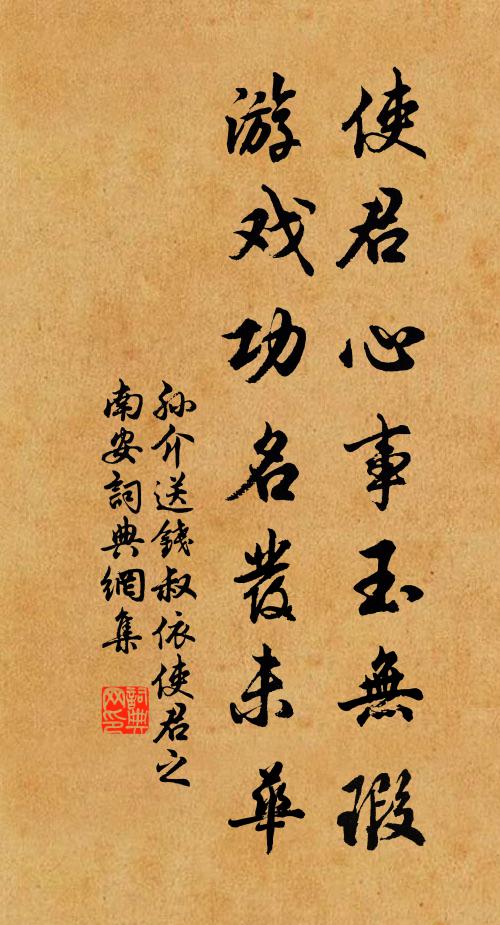 使君心事玉無瑕
游戏功名发未華
孙介送錢叔依使君之
南安詞典網集
詞典网印